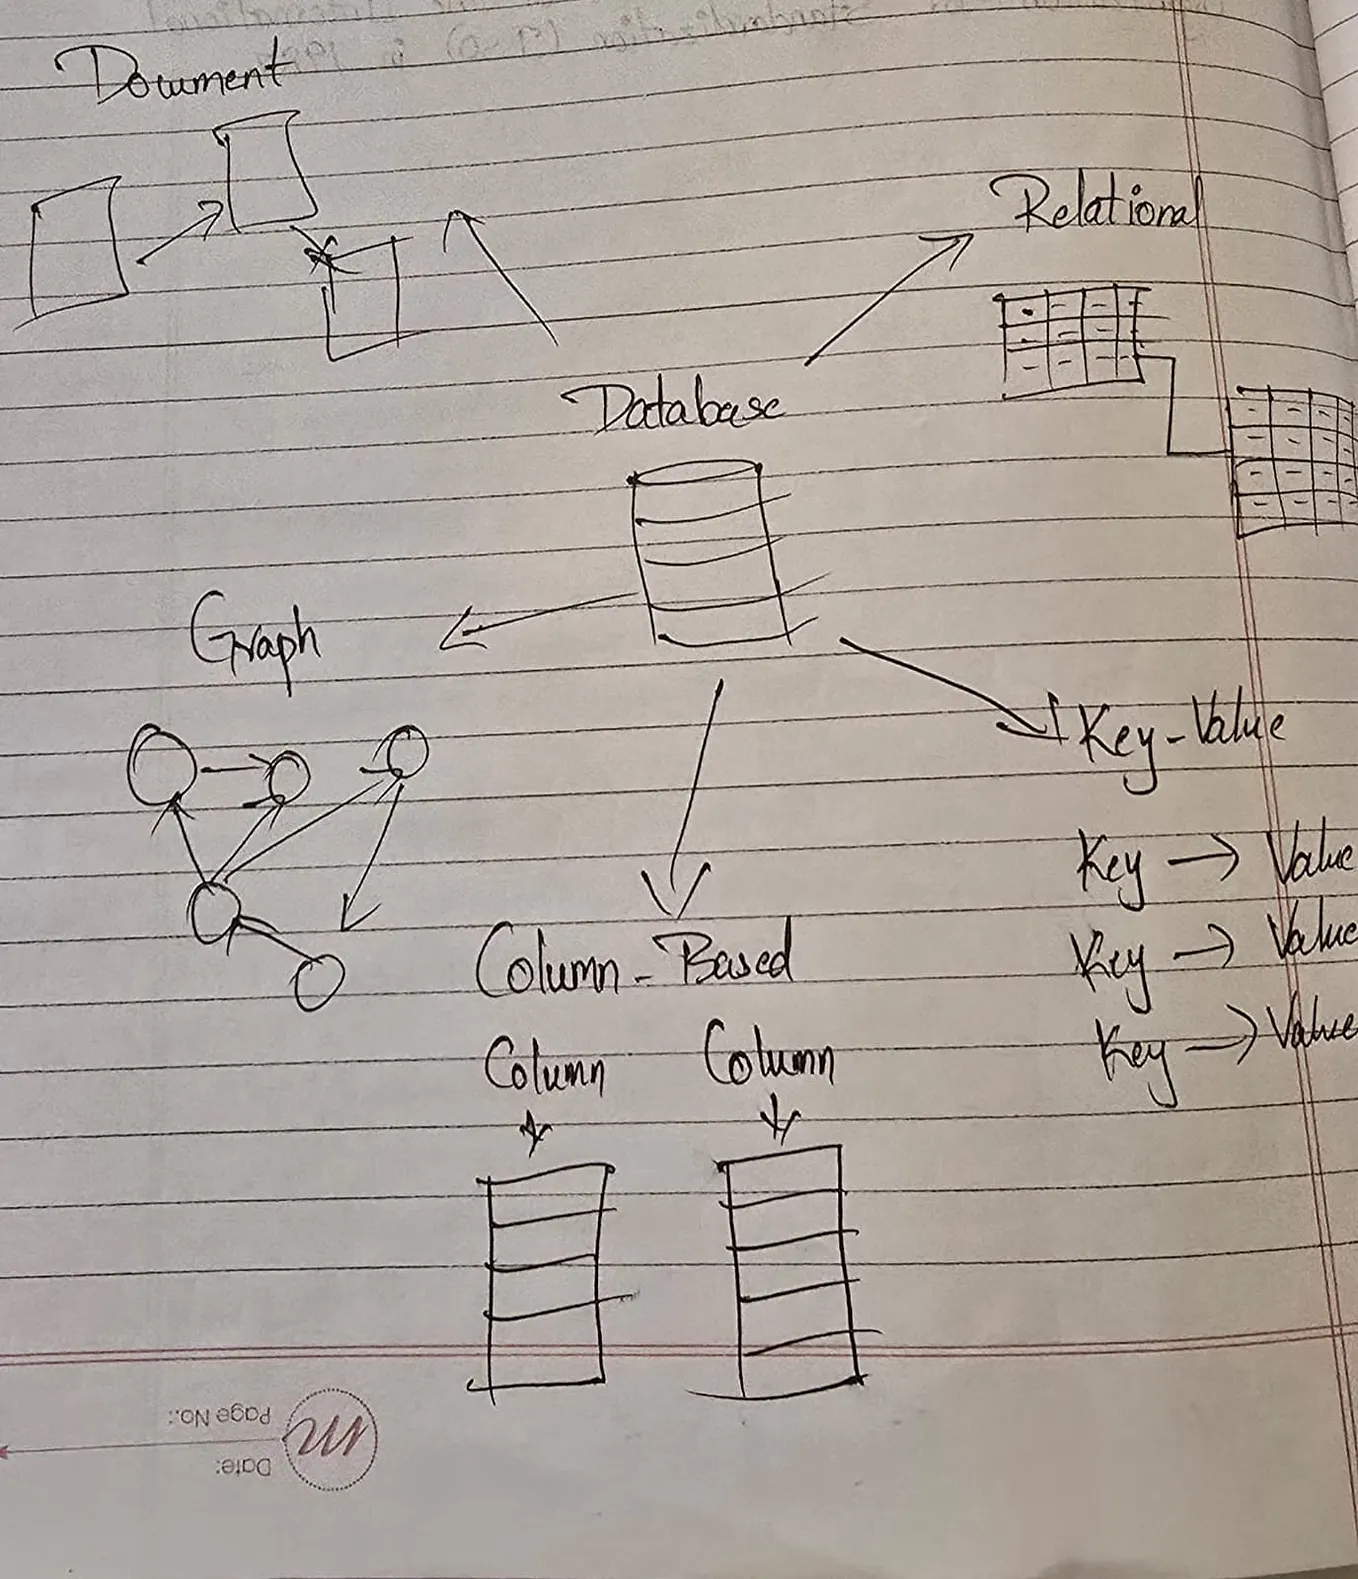 Document
Relational
Database
Graph
Key-Value
Key → Value
Key → Value
Key → Value
Column-Based
Column Column
Page No.:
Date: